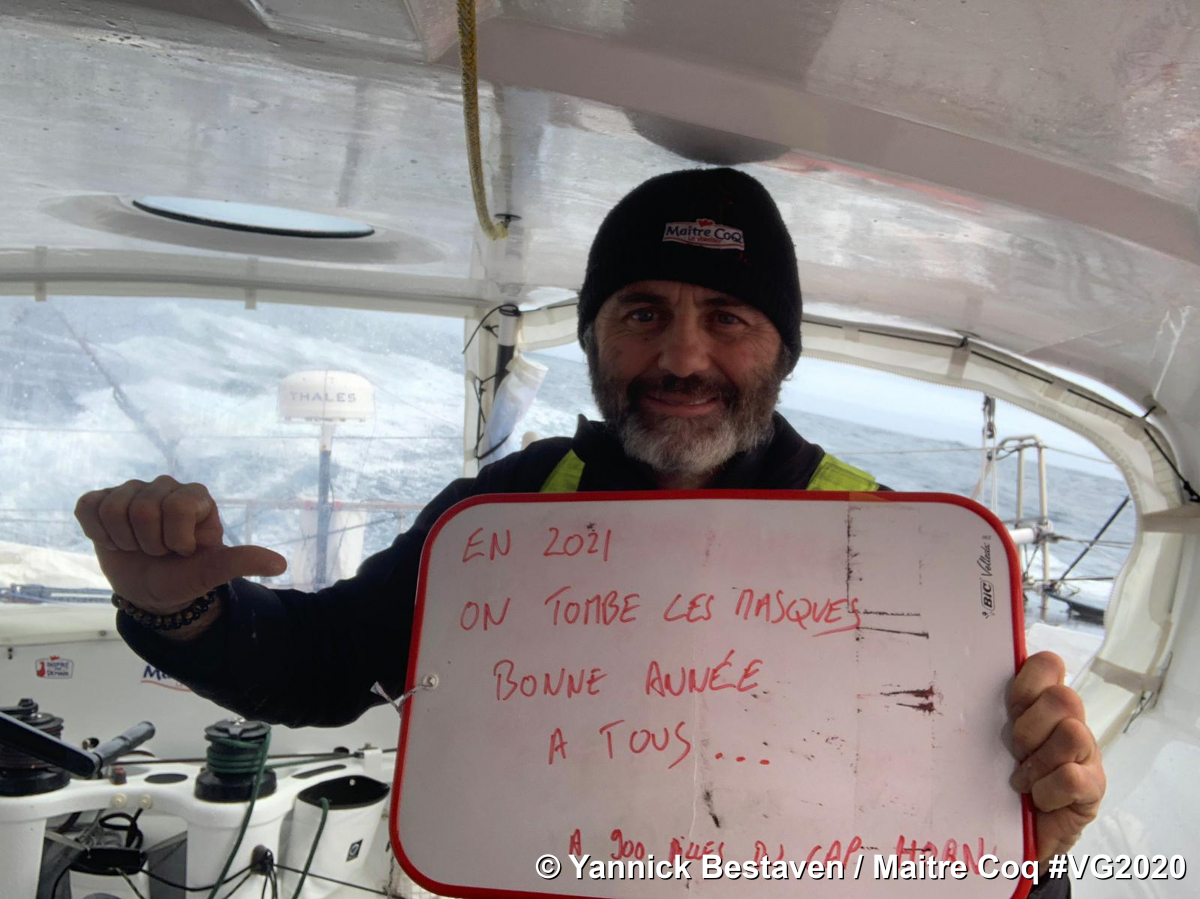 Maître CoQ
THALES
EN 2021
ON TOMBE LES MASQUES
BONNE ANNÉE
A TOUS...
A 900 MILLES DU CAP HORN
BIC Velleda
© Yannick Bestaven / Maitre Coq #VG2020